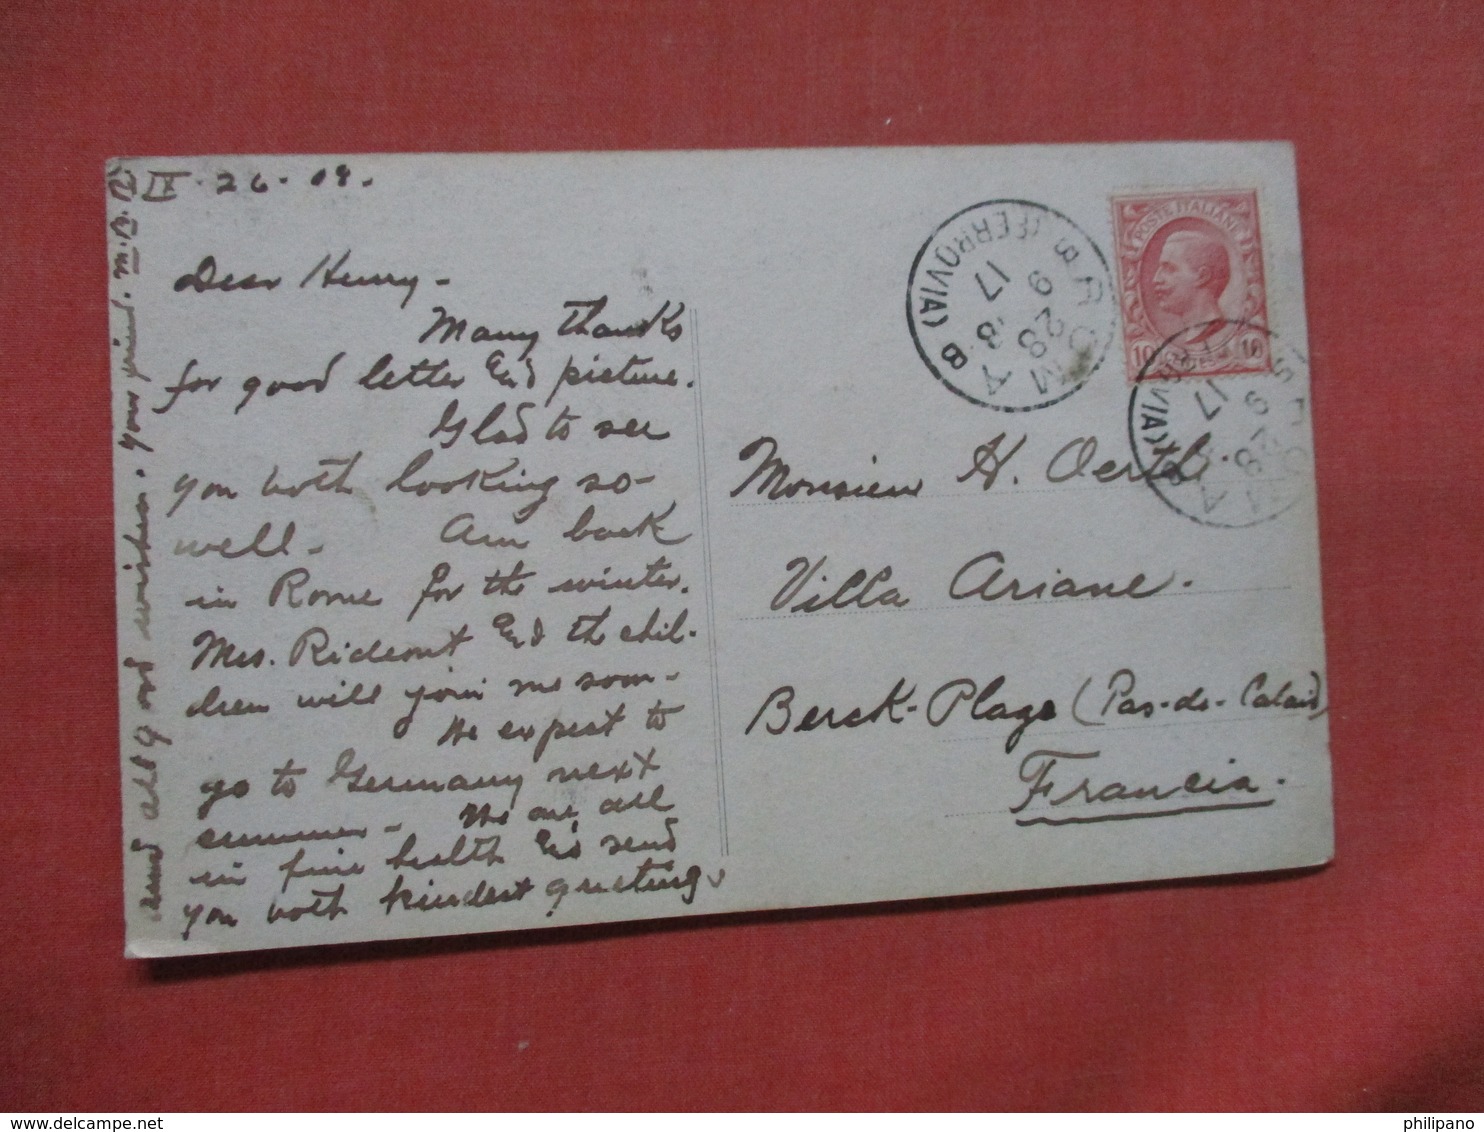 IX. 26. 08.
Dear Henry -
Many thanks
for good letter and picture.
Glad to see
you both looking so-
well. Am back
in Rome for the winter.
Mrs. Rideout and the chil-
dren will join me soon -
We expect to
go to Germany next
summer. We are all
in fine health and send
you both kindest greetings
and all good wishes. Your friend. M.B.R.
Monsieur H. Oertli.
Villa Ariane.
Berck-Plage (Pas-de-Calais)
Francia.
POSTE ITALIANE
10 10
ROMA
(FERROVIA)
8 8
28 9 08
17
ROMA
28 9
17
philipano
www.delcampe.net